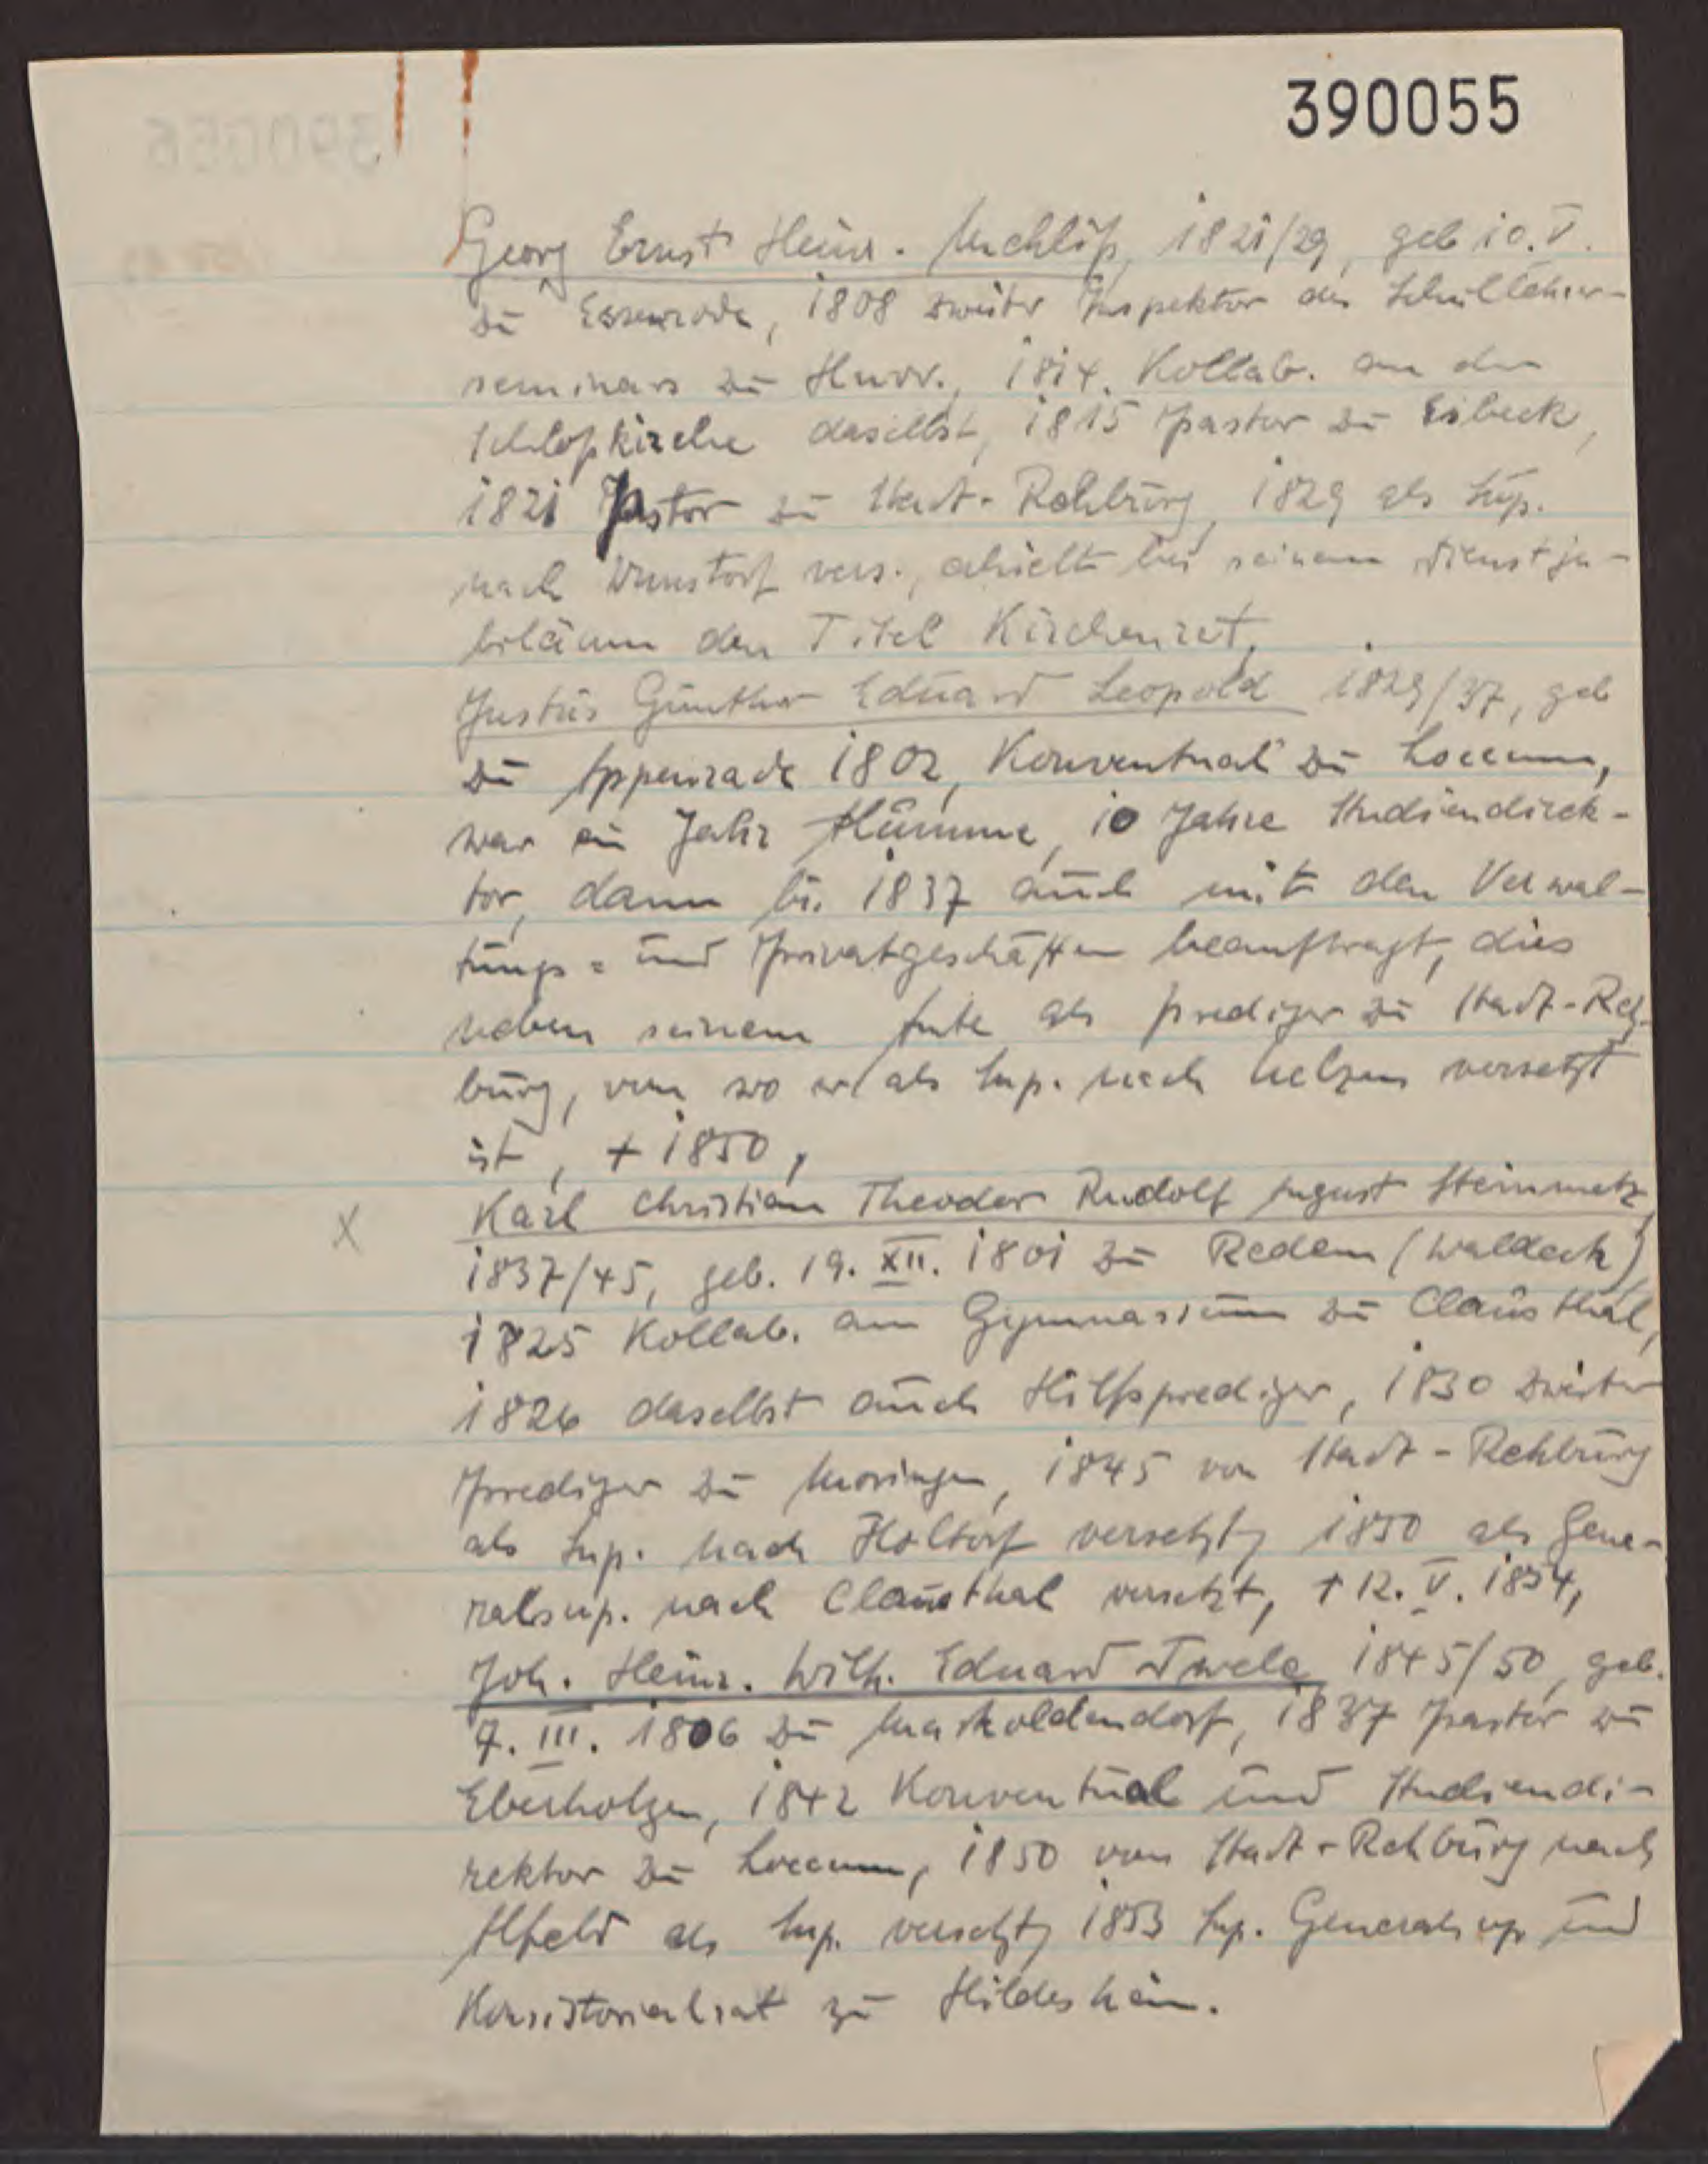 390055
Georg Ernst Heinr. Mehliß, 1821/29, geb 10. V.
zu Essenrode, 1808 zweiter Inspektor des Schullehrer-
seminars zu Hnov., 1814. Kollab. an der
Schloßkirche daselbst, 1815 Pastor zu Esbeck,
1821 Pastor zu Stadt-Rehburg, 1829 als Sup.
nach Wunstorf vers., erhielt bei seinem Dienstju-
biläum den Titel Kirchenrat,
Justus Günther Eduard Leopold 1829/37, geb
zu Appenrade 1802, Konventual zu Loccum,
war ein Jahr 10 Jahre Studiendirek-
tor, dann bis 1837 auch mit den Verwal-
tungs- und Privatgeschäften beauftragt, dies
neben seinem Amte als Prediger zu Stadt-Reh-
burg, von wo er als Sup. nach Uelzen versetzt
ist, + 1850,
x Karl Christian Theodor Rudolf August Steinmetz,
1837/45, geb. 19. XII. 1801 zu Redem (Waldeck),
1825 Kollab. am Gymnasium zu Clausthal,
1826 daselbst auch Hilfsprediger, 1830 zweiter
Prediger zu Moringen, 1845 von Stadt-Rehburg
als Sup. nach Holtorf versetzt, 1850 als Gene-
ralsup. nach Clausthal versetzt, + 12. V. 1854,
Joh. Heinr. Wilh. Eduard Twele, 1845/50, geb.
7. III. 1806 zu Markoldendorf, 1837 Pastor zu
Eberholzen, 1842 Konventual und Studiendi-
rektor zu Loccum, 1850 von Stadt-Rehburg nach
Alfeld als Sup. versetzt, 1853 Sup. Generalsup und
Konsistorialrat zu Hildesheim.